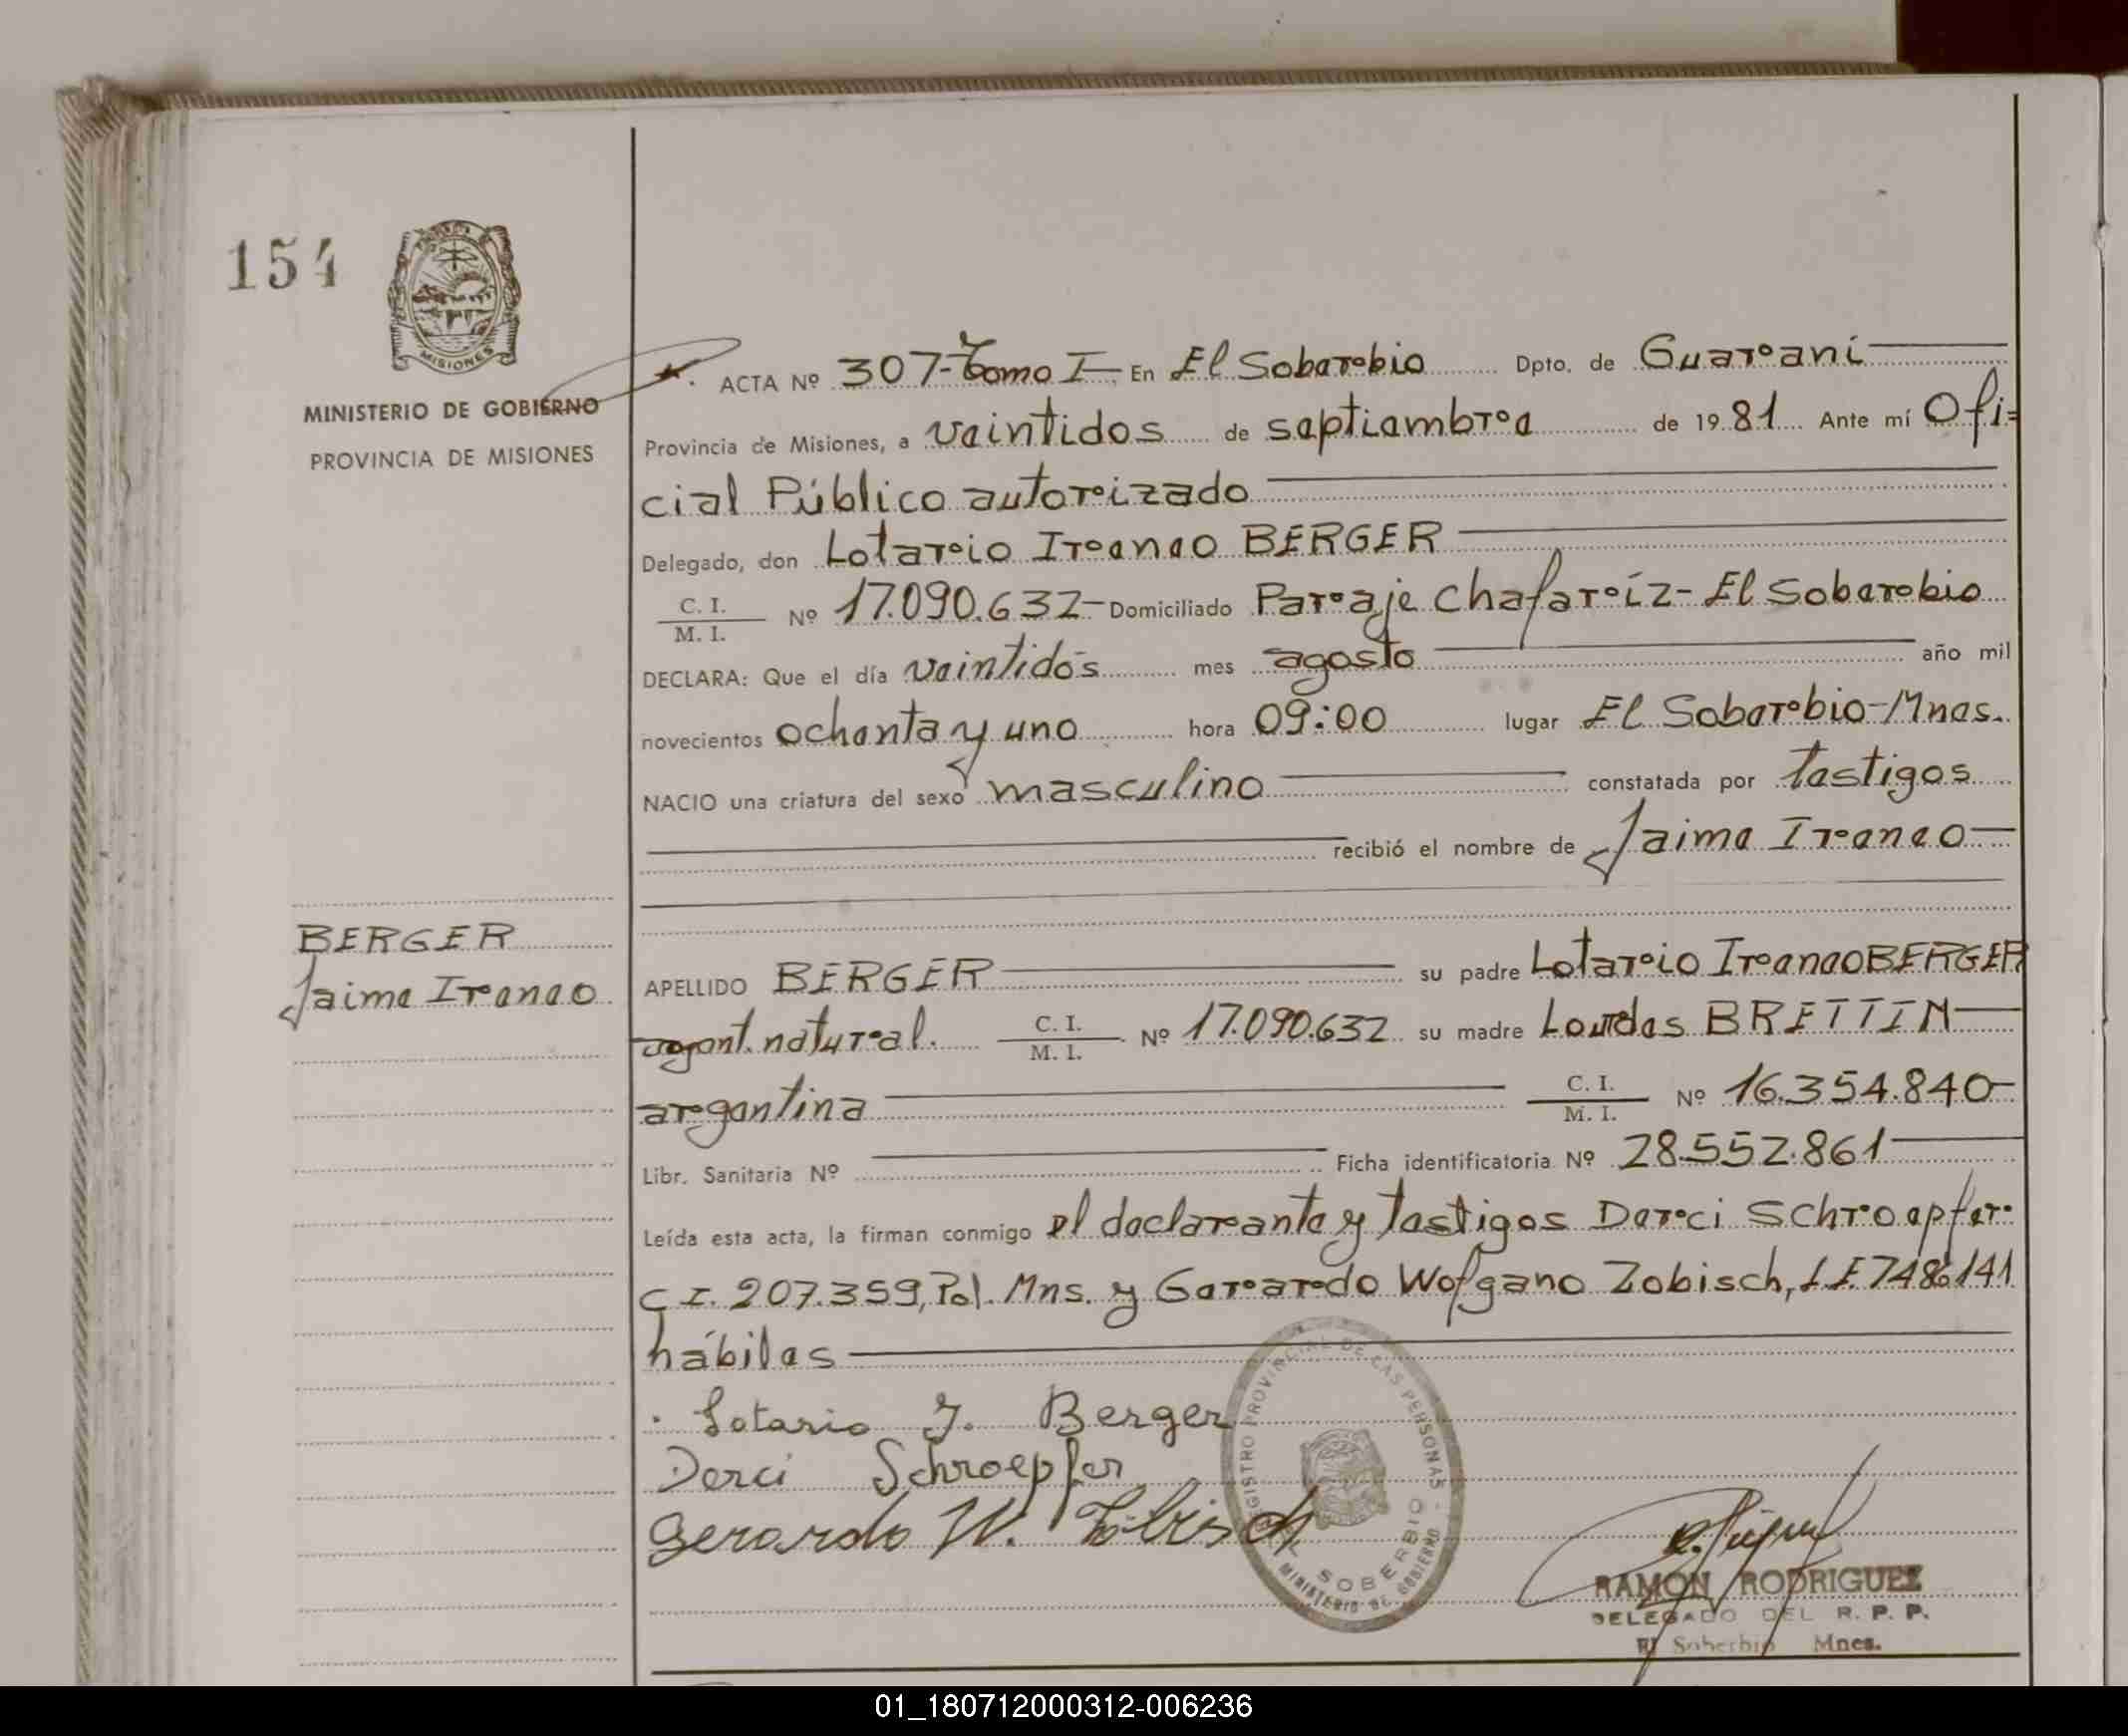 154
MISIONES
MINISTERIO DE GOBIERNO
PROVINCIA DE MISIONES
ACTA Nº 307-Tomo I En El Soberbio Dpto. de Guaraní
Provincia de Misiones, a veintidos de septiembre de 1981 Ante mí Ofi=
cial Público autorizado
Delegado, don Lotario Ireneo BERGER
C. I.
M. I. Nº 17.090.632- Domiciliado Paraje Chafaríz-El Soberbio
DECLARA: Que el día veintidós mes agosto año mil
novecientos ochenta y uno hora 09:00 lugar El Soberbio-Mnes.
NACIO una criatura del sexo masculino constatada por testigos
recibió el nombre de Jaime Ireneo
BERGER
Jaime Ireneo
APELLIDO BERGER su padre Lotario Ireneo BERGER
argent. natural. C. I.
M. I. Nº 17.090.632 su madre Lourdes BRETTIN
argentina C. I.
M. I. Nº 16.354.840
Libr. Sanitaria Nº Ficha identificatoria Nº 28.552.861
Leída esta acta, la firman conmigo el declarante y testigos Derci Schroepfer
C I. 207.359, Pol. Mns. y Gerardo Wofgano Zobisch, L.E. 7486141
hábiles
Lotario I. Berger
Derci Schroepfer
Gerardo W. Zobisch
REGISTRO PROVINCIAL DE LAS PERSONAS
EL SOBERBIO
MINISTERIO DE GOBIERNO
RAMON RODRIGUEZ
DELEGADO DEL R. P. P.
El Soberbio Mnes.
01_180712000312-006236